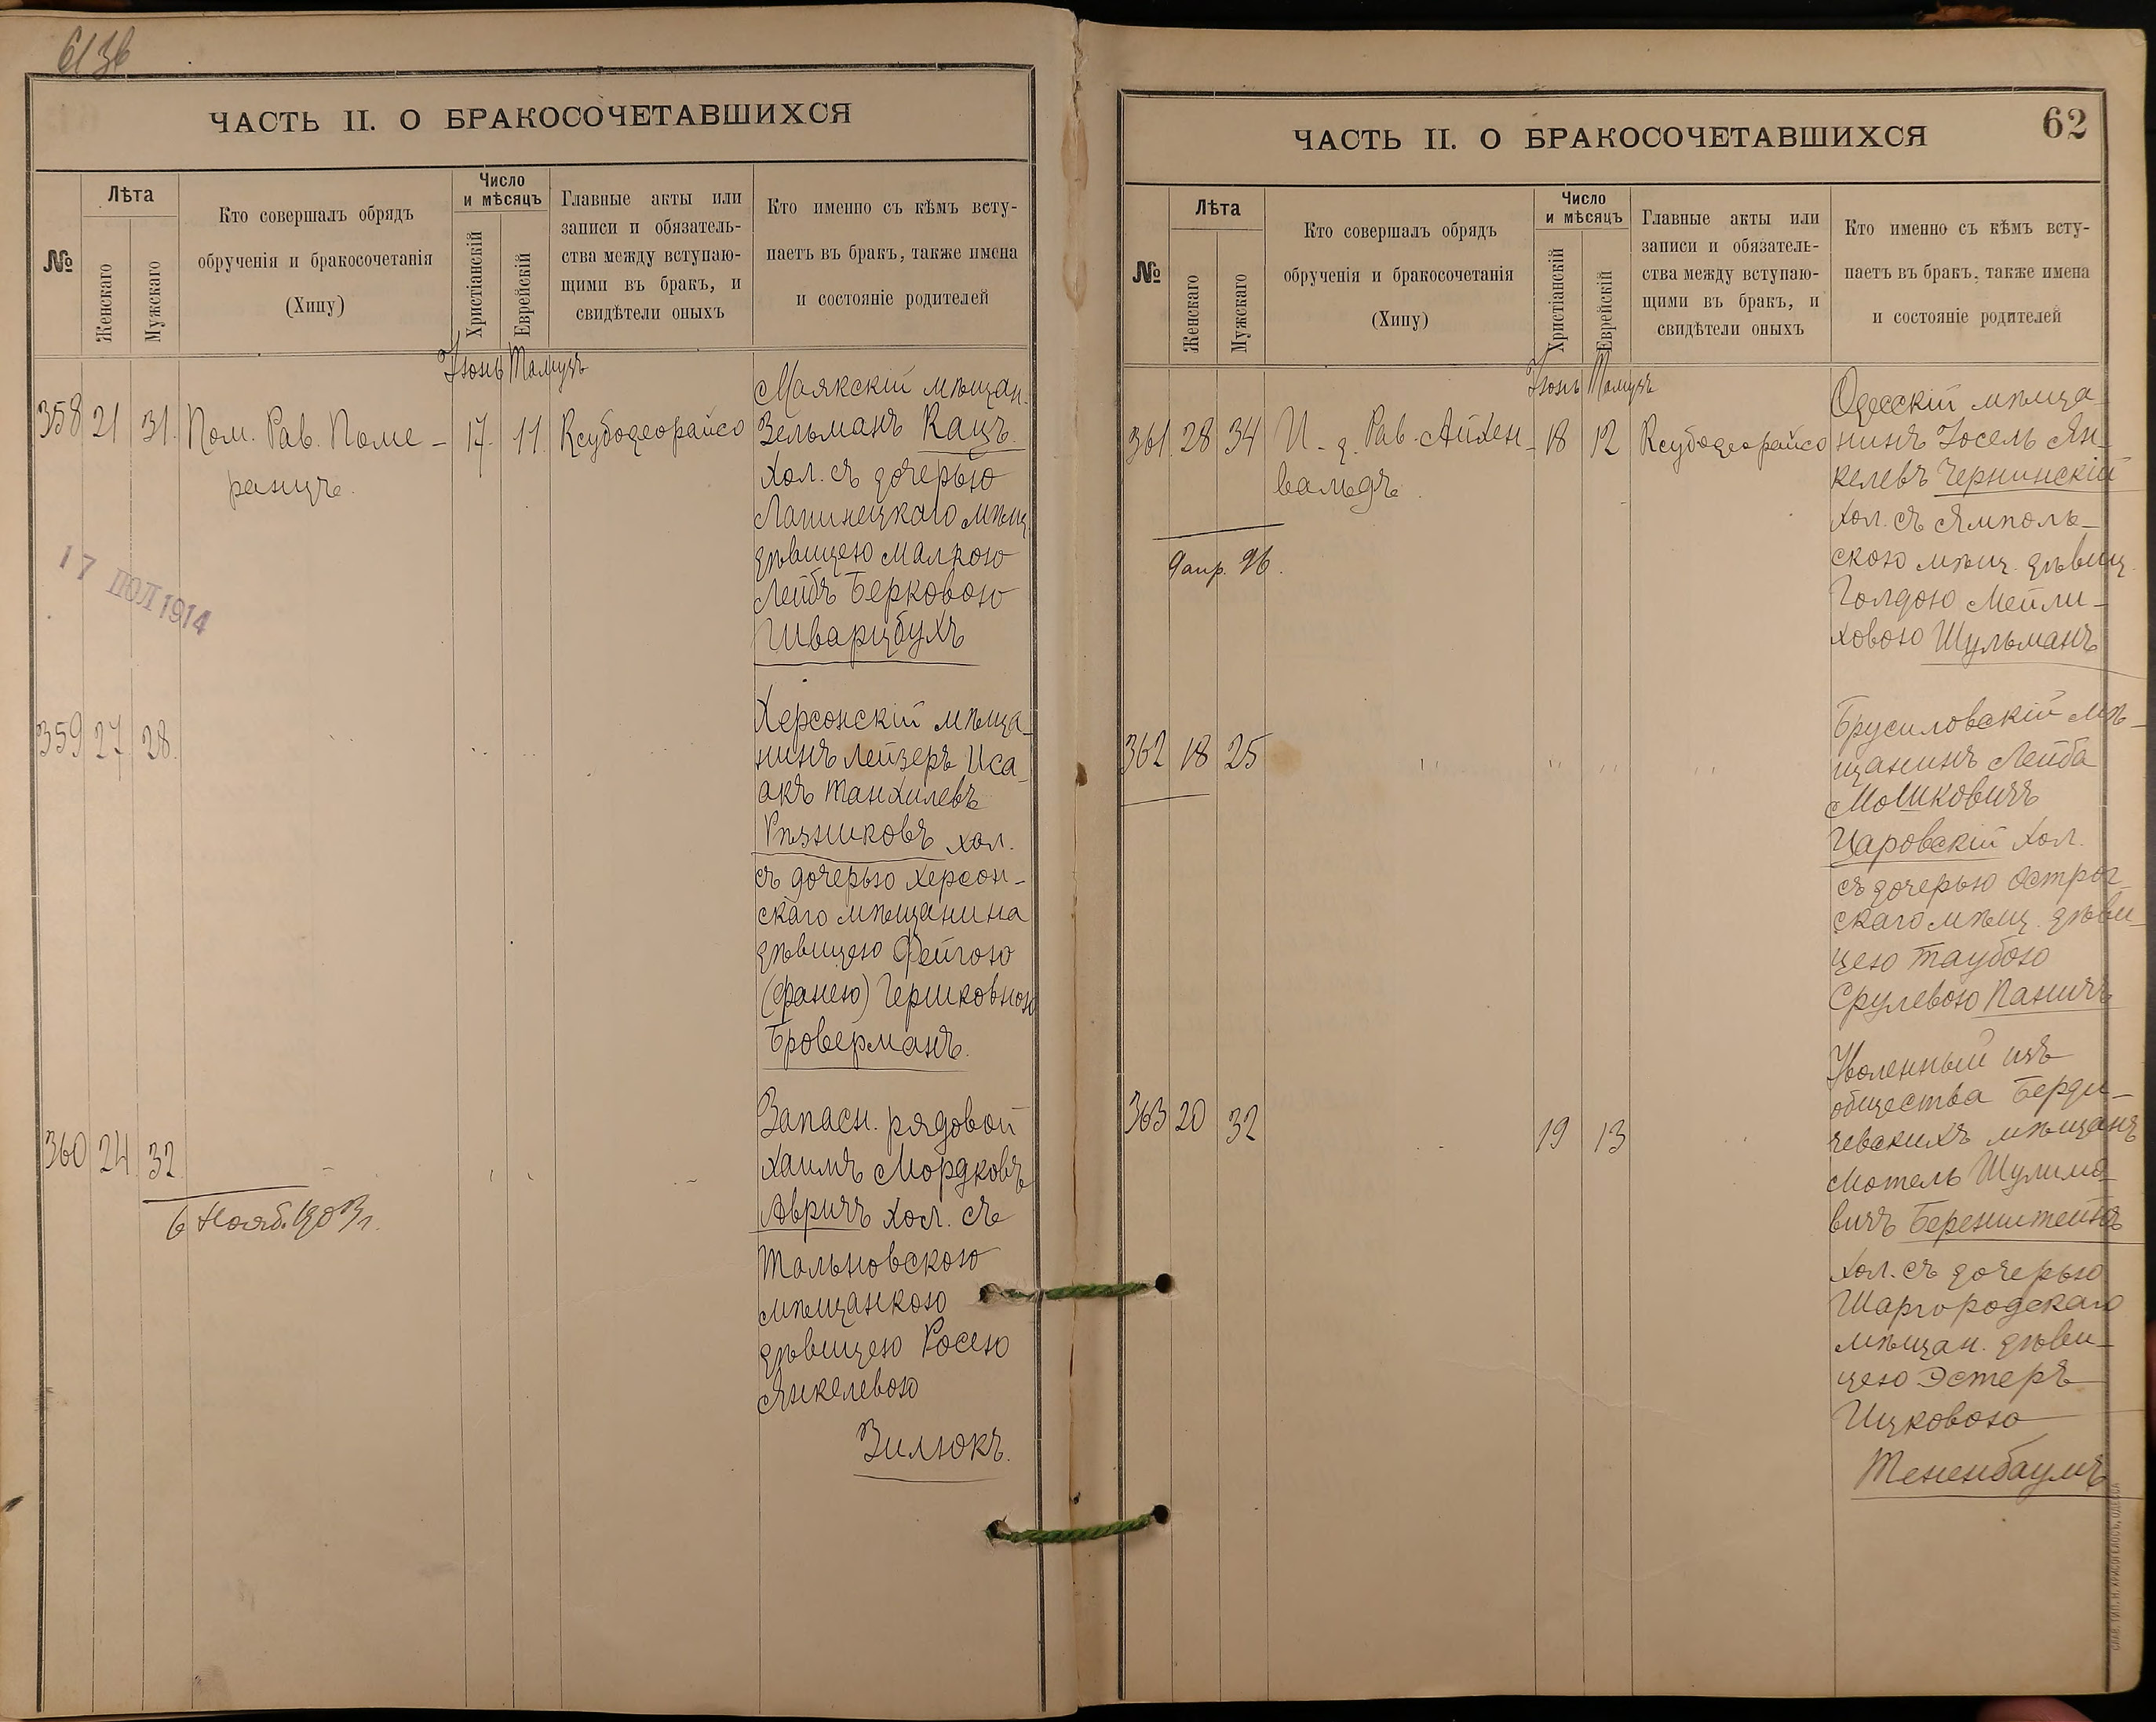 61 зв
ЧАСТЬ II. О БРАКОСОЧЕТАВШИХСЯ
№
Лѣта
Женскаго
Мужскаго
Кто совершалъ обрядъ
обрученія и бракосочетанія
(Хипу)
Число
и мѣсяцъ
Христіанскій
Еврейскій
Главные акты или
записи и обязатель-
ства между вступаю-
щими въ бракъ, и
свидѣтели оныхъ
Кто именно съ кѣмъ всту-
паетъ въ бракъ, также имена
и состояніе родителей
Іюнь Тамузъ
358 21 31. Пом. Рав. Поме-
ранцъ.
17. 11. Ксубодеорайсо
Маякскій мѣщан.
Зельманъ Кацъ.
хол. съ дочерью
Лапинецкаго мѣщ.
дѣвицею Малкою
Лейбъ Берковою
Шварцбухъ
17 ІЮЛ 1914
359 27 28.
Херсонскій мѣща-
нинъ Лейзеръ Иса-
акъ Танхилевъ
Рѣзниковъ хол.
съ дочерью херсон-
скаго мѣщанина
дѣвицею Фейгою
(Фанею) Гершковною
Броверманъ.
360 24 32.
6 Нояб. 1903 г.
Запасн. рядовой
Хаимъ Мордковъ
Авричъ хол. съ
Тальновскою
мѣщанкою
дѣвицею Росею
Янкелевою
Зилюкъ.
62
ЧАСТЬ II. О БРАКОСОЧЕТАВШИХСЯ
№
Лѣта
Женскаго
Мужскаго
Кто совершалъ обрядъ
обрученія и бракосочетанія
(Хипу)
Число
и мѣсяцъ
Христіанскій
Еврейскій
Главные акты или
записи и обязатель-
ства между вступаю-
щими въ бракъ, и
свидѣтели оныхъ
Кто именно съ кѣмъ всту-
паетъ въ бракъ, также имена
и состояніе родителей
Іюнь Тамузъ
361. 28 34 И. д. Рав. Айхен-
вальдъ.
18 12 Ксубодеорайсо
9 апр. 96.
Одесскій мѣща-
нинъ Іосель Ян-
келевъ Чернинскій
хол. съ Ямполь-
скою мѣщ. дѣвиц.
Голдою Мейли-
ховою Шульманъ
362 18 25
Брусиловскій мѣ-
щанинъ Лейба
Мошковичъ
Царовскій хол.
съ дочерью Острог-
скаго мѣщ. дѣви-
цею Таубою
Срулевою Паничъ
363 20 32
19 13
Уволенный изъ
общества Берди-
чевскихъ мѣщанъ
Мотель Шулимо-
вичъ Беренштейнъ
хол. съ дочерью
Шаргородскаго
мѣщан. дѣви-
цею Эстеръ
Ицковою
Тененбаумъ
СЛАВ. ТИП. Н. ХРИСОГЕЛОСЪ, ОДЕССА